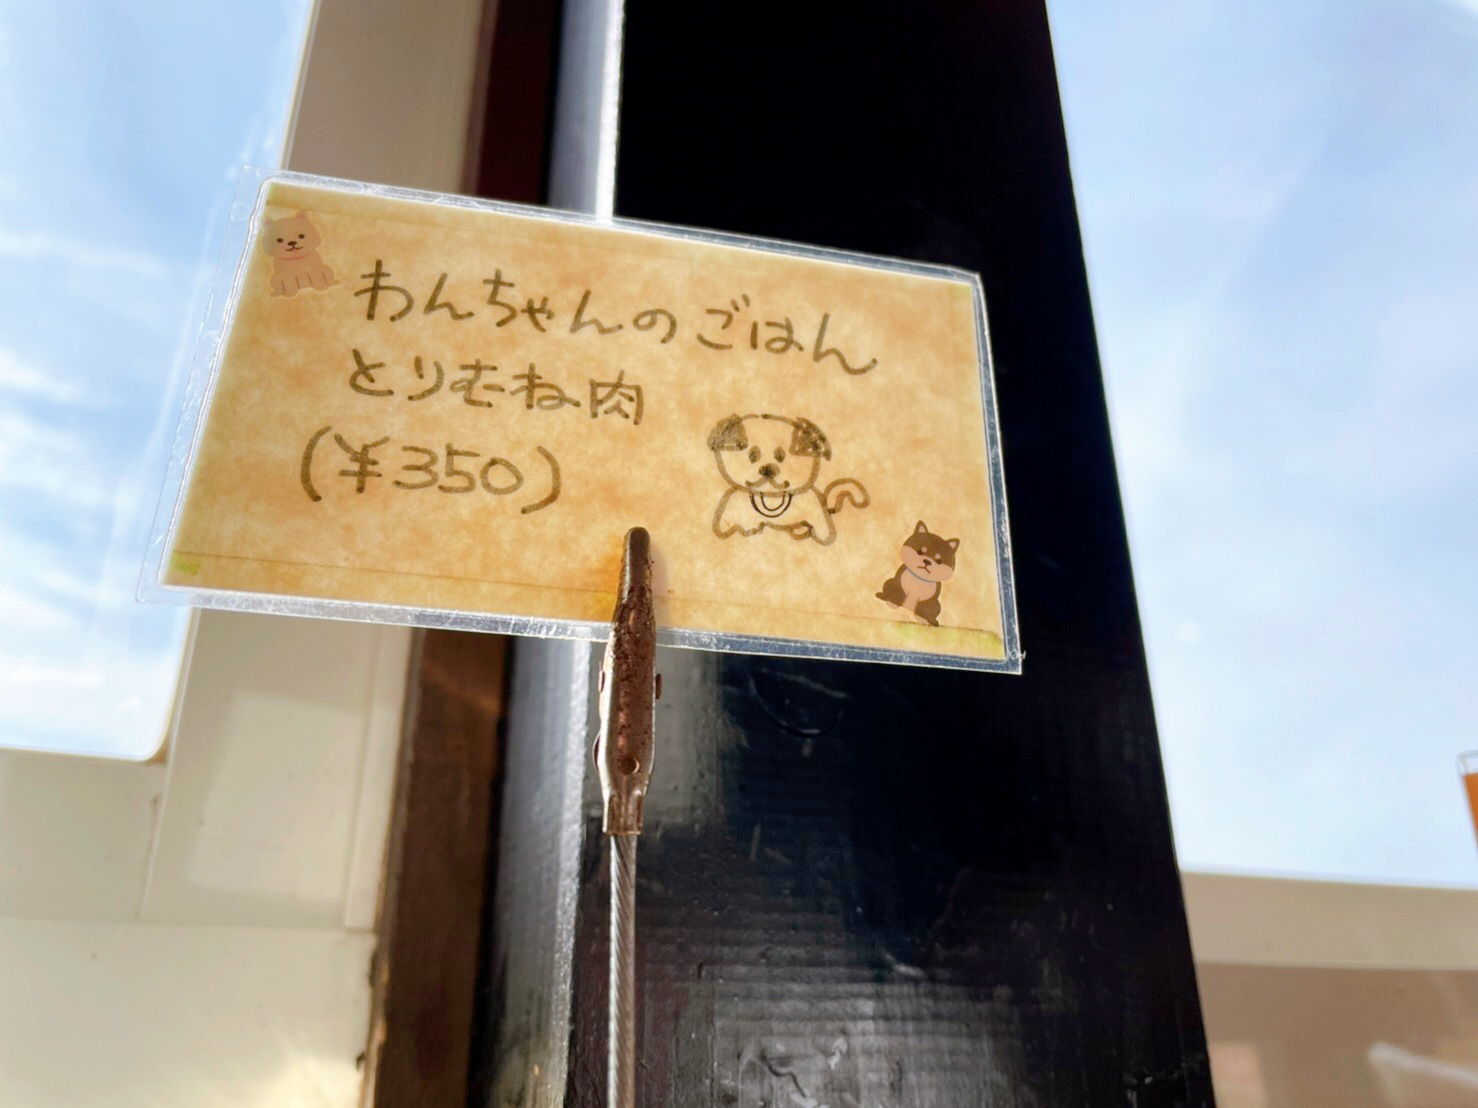 わんちゃんのごはん
とりむね肉
(¥350)